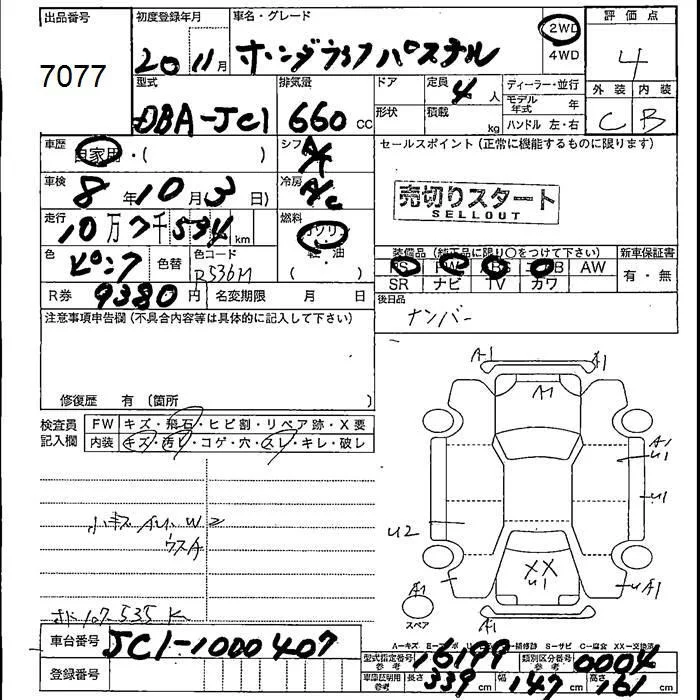 出品番号 初度登録年月 車名・グレード 2WD 4WD 評価点
7077 20 11月 ホンダライフパステル 4
型式 排気量 ドア 定員 4人 ディーラー・並行 外装 内装
DBA-JC1 660 cc 形状 積載 kg モデル年式 年 ハンドル 左・右 C B
車歴 自家用・( ) シフト セールスポイント (正常に機能するものに限ります)
車検 8年10月3日) 冷房 A/C 売切りスタート
SELLOUT
走行 10万7千534km 燃料 ガソリン
軽・油
( )
装備品 (純正品に限り○をつけて下さい) 新車保証書
PS PW AW 有・無
SR ナビ TV カワ
色 ピンク 色替 色コード R536M
R券 9380円 名変期限 月 日 後日品
ナンバー
注意事項申告欄 (不具合内容等は具体的に記入して下さい)
修復歴 有 (箇所 )
検査員記入欄 FW キズ・飛石・ヒビ割・リペア跡・X要
内装 キズ・汚レ・コゲ・穴・スレ・キレ・破レ
A1 A1
A1
A1
U1
U1
U2
XX
U1
A1 UA1
スペア A1
小キズ W2
ウスA
107535K
車台番号 JC1-1000407
登録番号
A=キズ
型式指定番号 参考 16199 類別区分番号 参考 0004
車庫証明用 参考 長さ 339cm 幅 147cm 高さ 161cm